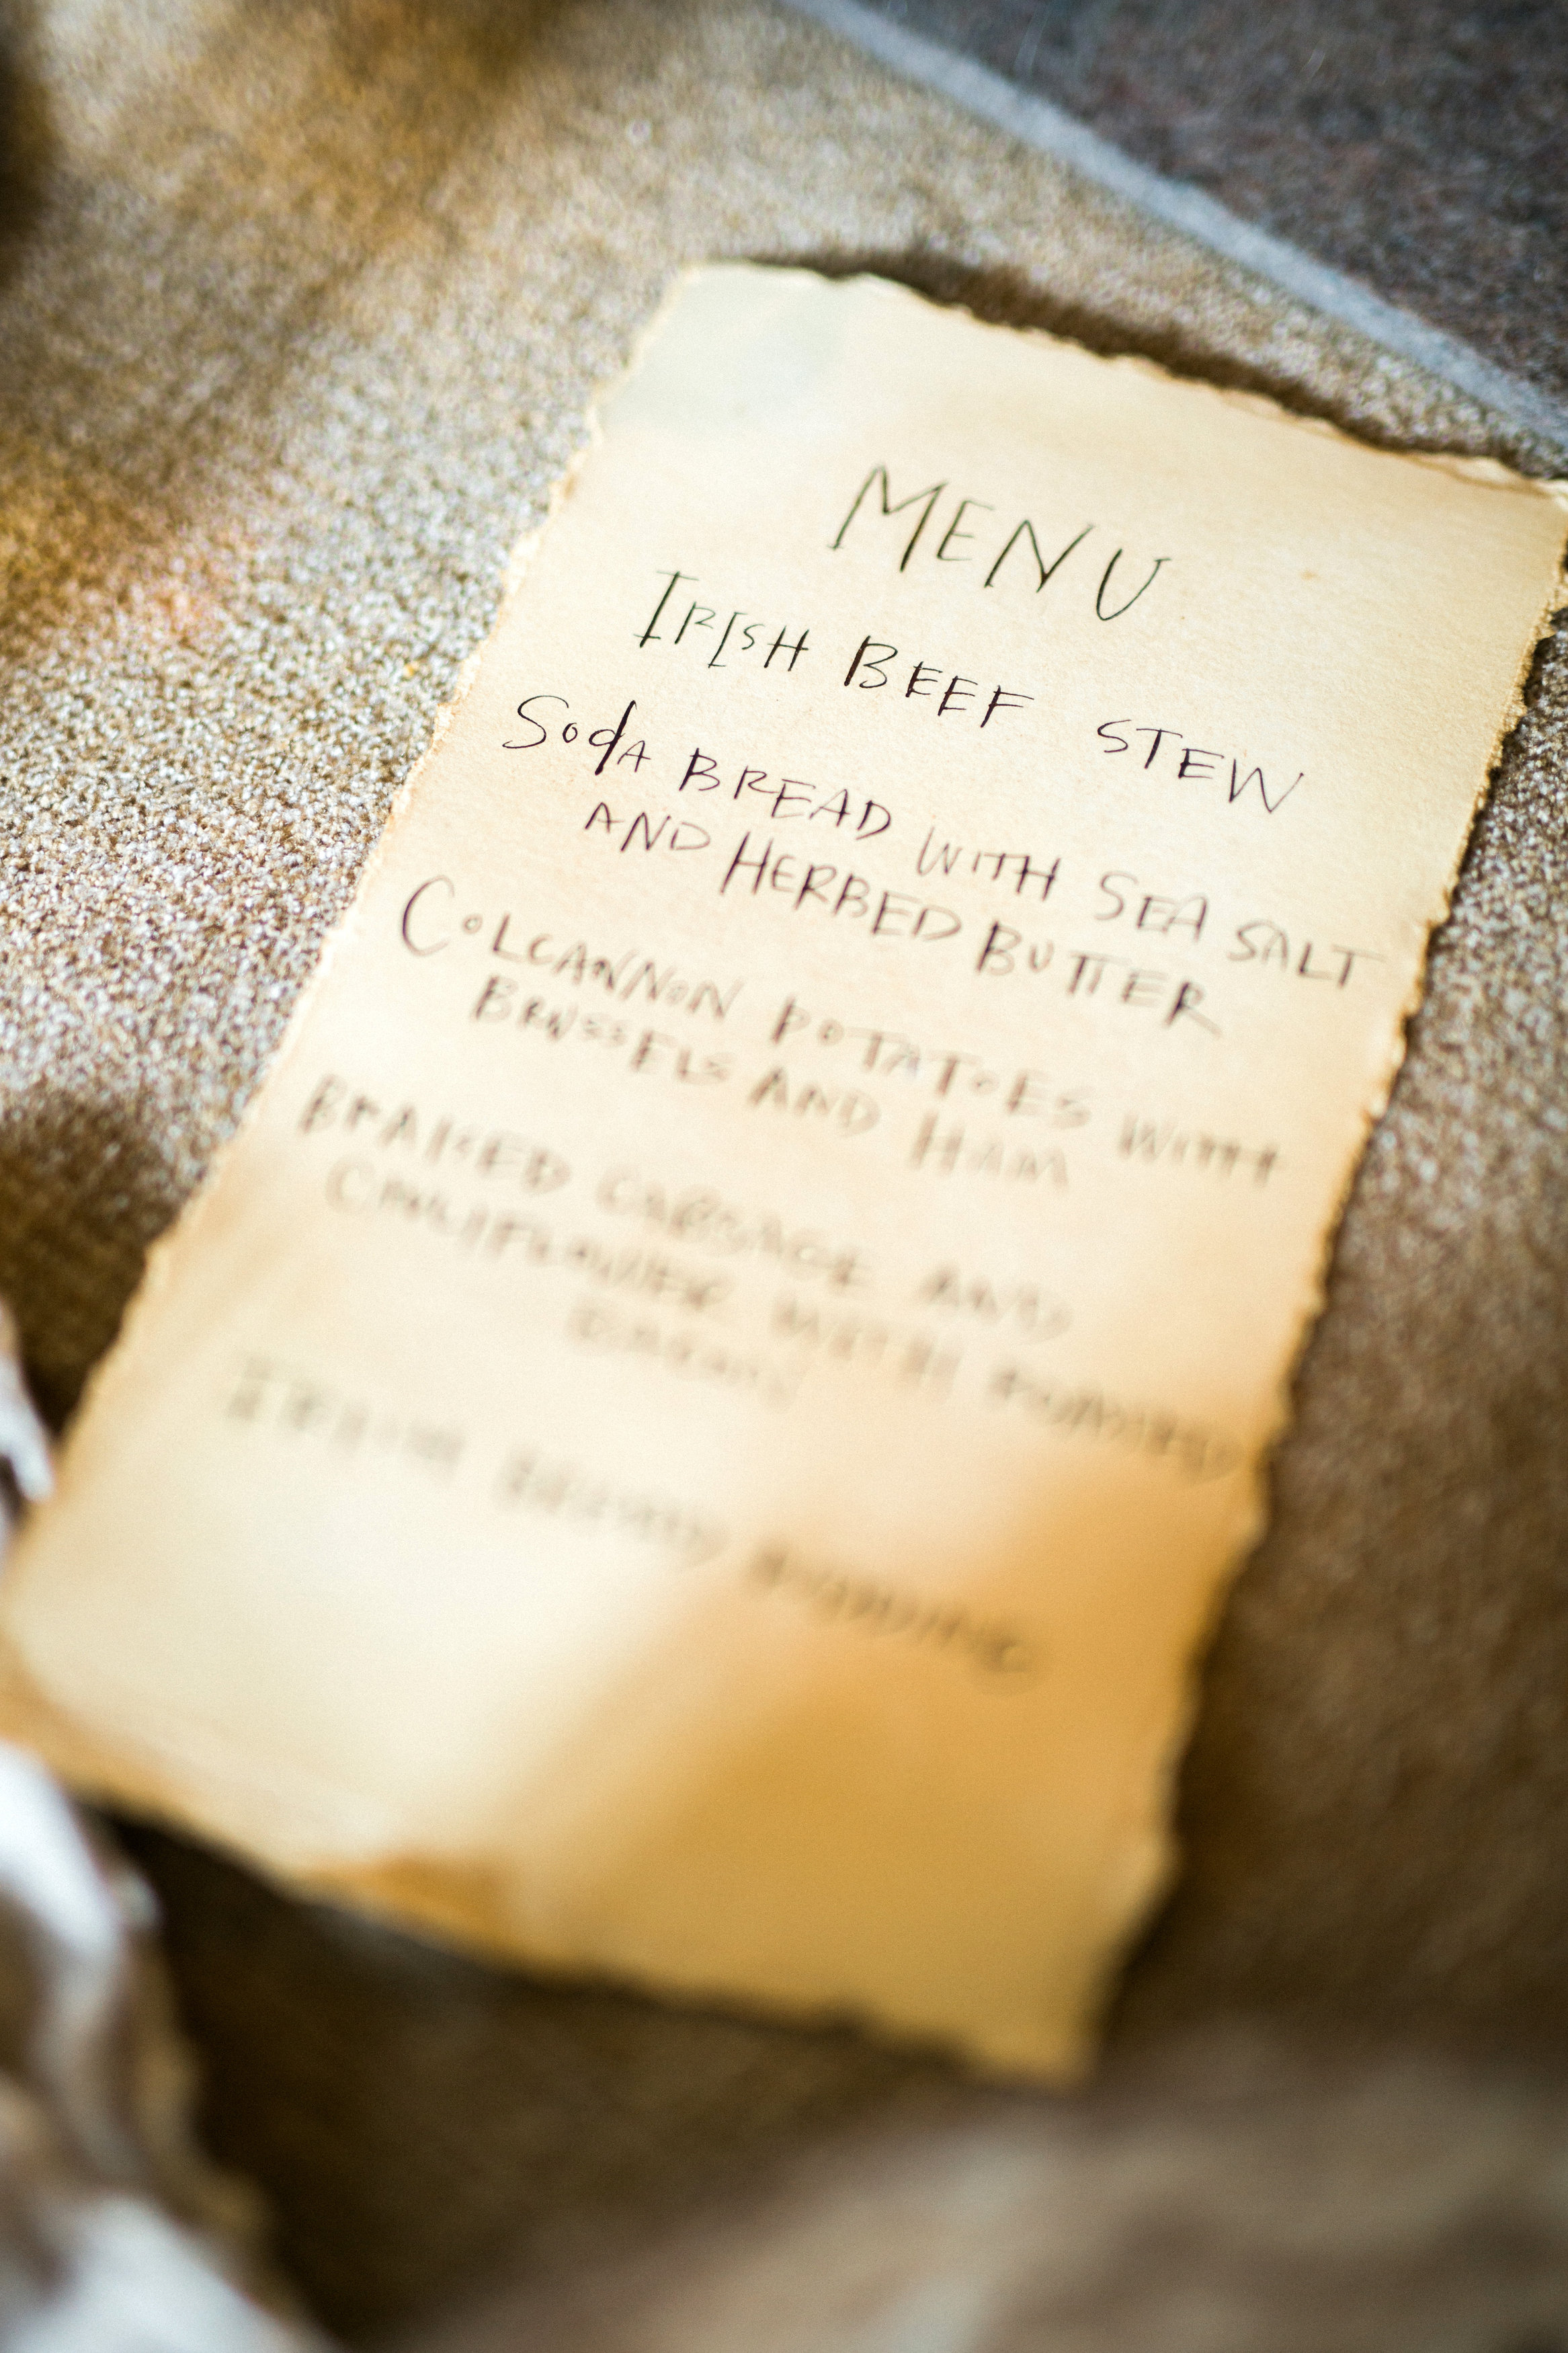 MENU
IRISH BEEF STEW
SodA BREAD WITH SEA SALT
AND HERBED BUTTER
COLCANNON POTATOES WITH
BRUSSELS AND HAM
BRAISED CABBAGE AND
CAULIFLOWER WITH ROASTED
IRISH BREAD PUDDING